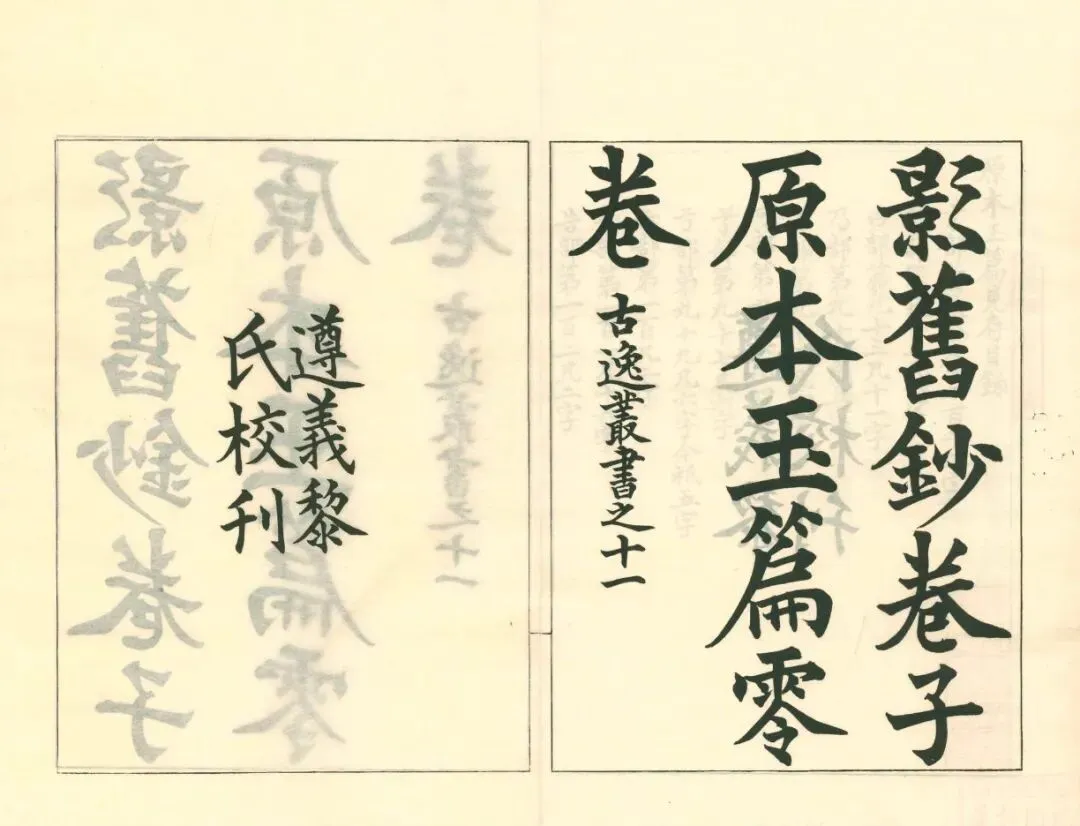 影舊鈔卷子
原本玉篇零
卷
古逸叢書之十一
遵義黎
氏校刊